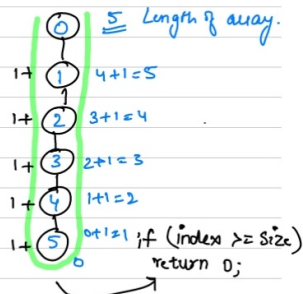 0 5 Length of array.
1+ 1 4+1=5
1+ 2 3+1=4
1+ 3 2+1=3
1+ 4 1+1=2
1+ 5 0+1=1 if (index >= size)
0 return 0;